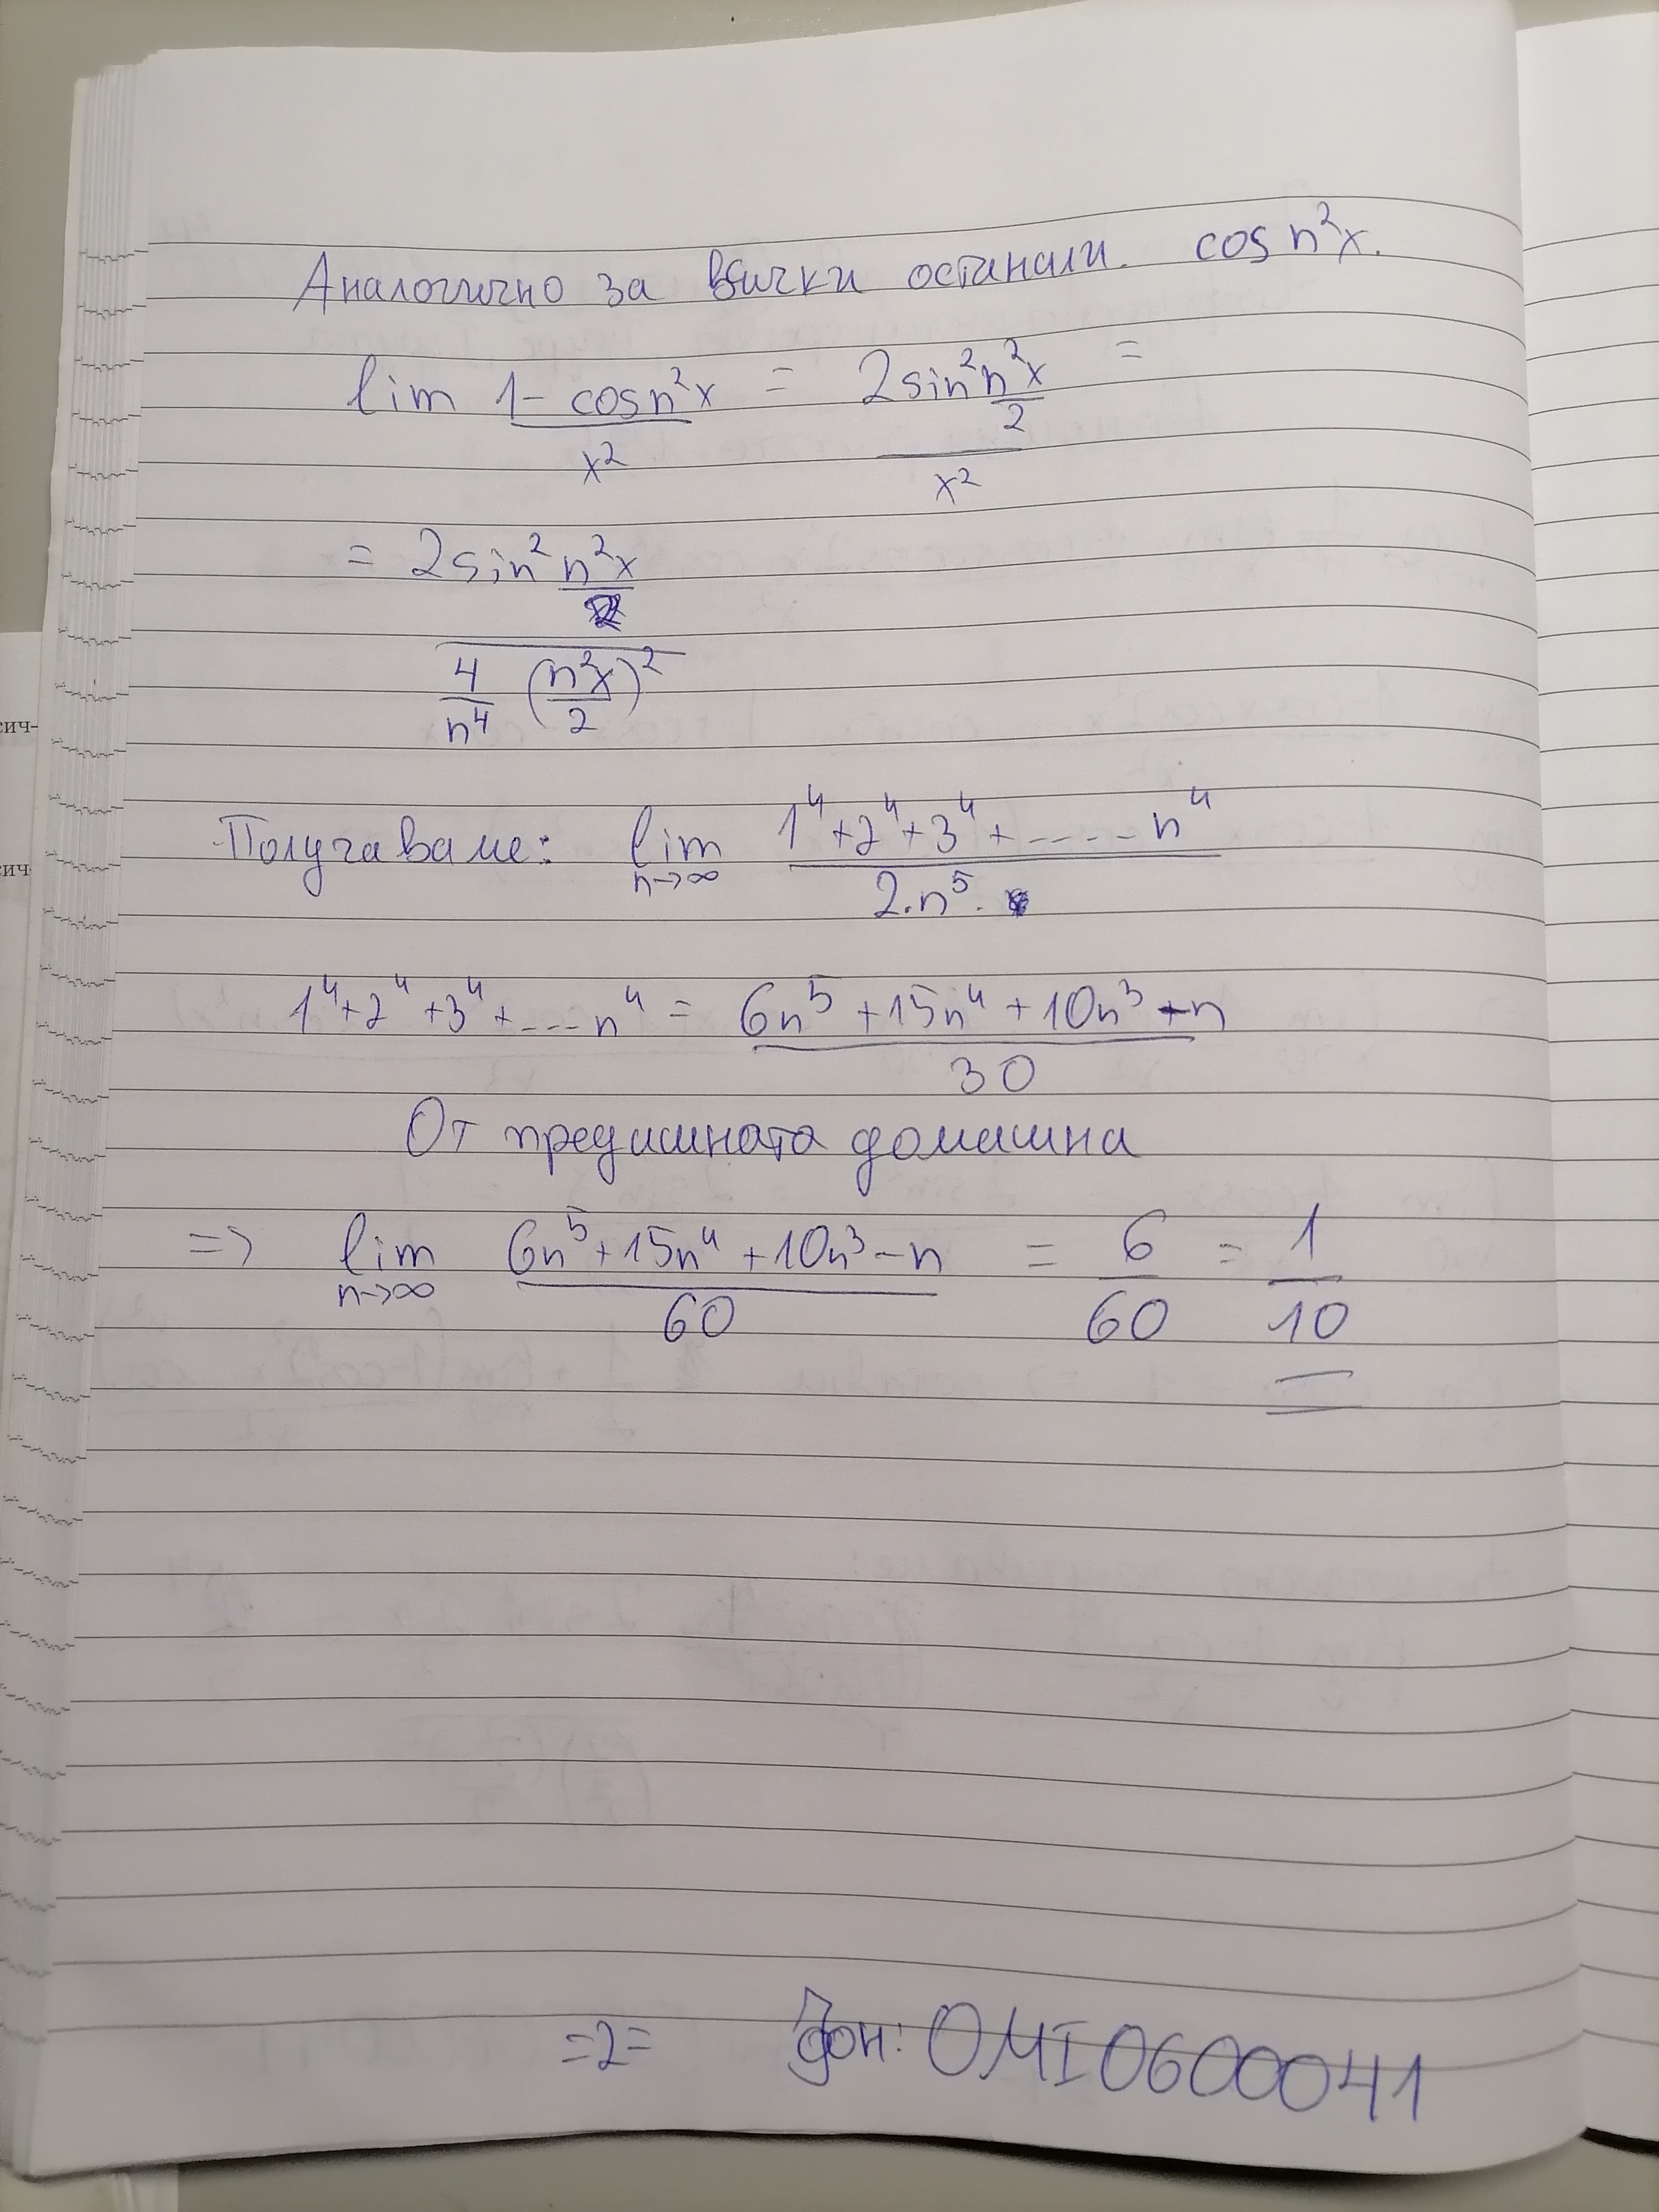 Аналогично за всички останали. cos n²x.
lim (1 - cos n²x)/x² = (2sin² (n²x)/2)/x² =
= (2sin² (n²x)/2)/((4/n⁴) ((n²x)/2)²)
сич-
Получаваме: lim n→∞ (1⁴+2⁴+3⁴+.....n⁴)/(2.n⁵.)
сич
1⁴+2⁴+3⁴+...n⁴ = (6n⁵+15n⁴+10n³-n)/30
От предишната домашна
=> lim n→∞ (6n⁵+15n⁴+10n³-n)/60 = 6/60 = 1/10
=2= Фон: 0MI0600041